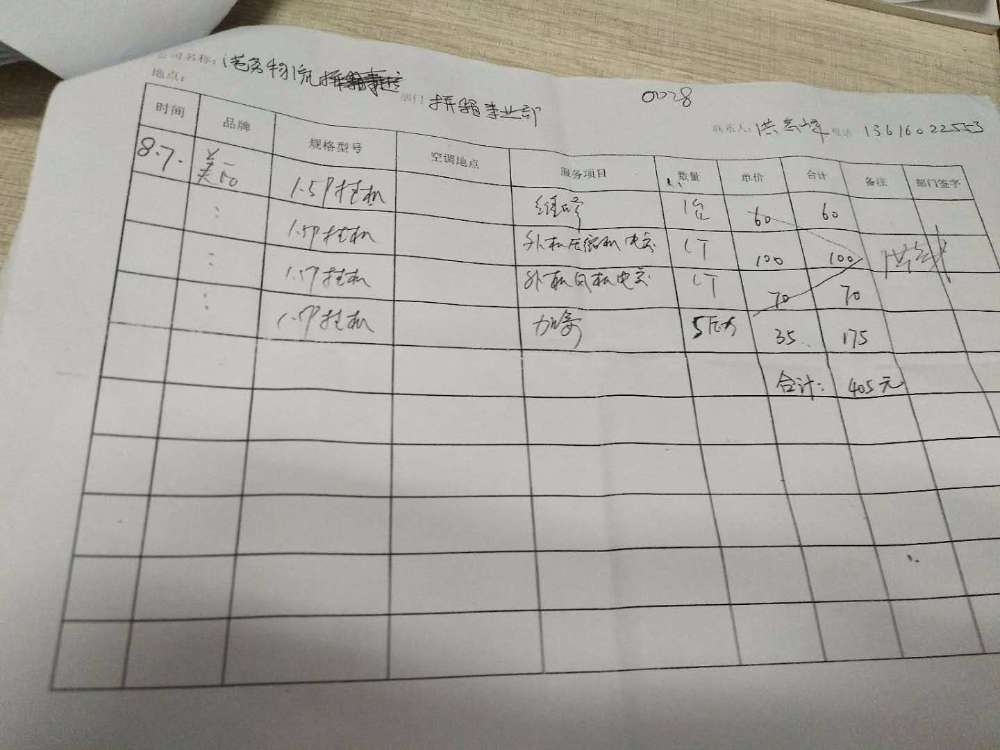 公司名称: 港务物流 部门 拼箱事业部 0028
地点: 联系人: 洪 电话 13616022553
时间 品牌 规格型号 空调地点 服务项目 数量 单价 合计 备注 部门签字
8.7. 美的 1.5P挂机 维修 1台 60 60
: 1.5P挂机 外机压缩机电容 1个 100 100
: 1.5P挂机 外机风机电容 1个 70 70
: 1.5P挂机 加氟 5压力 35 175
合计: 405元